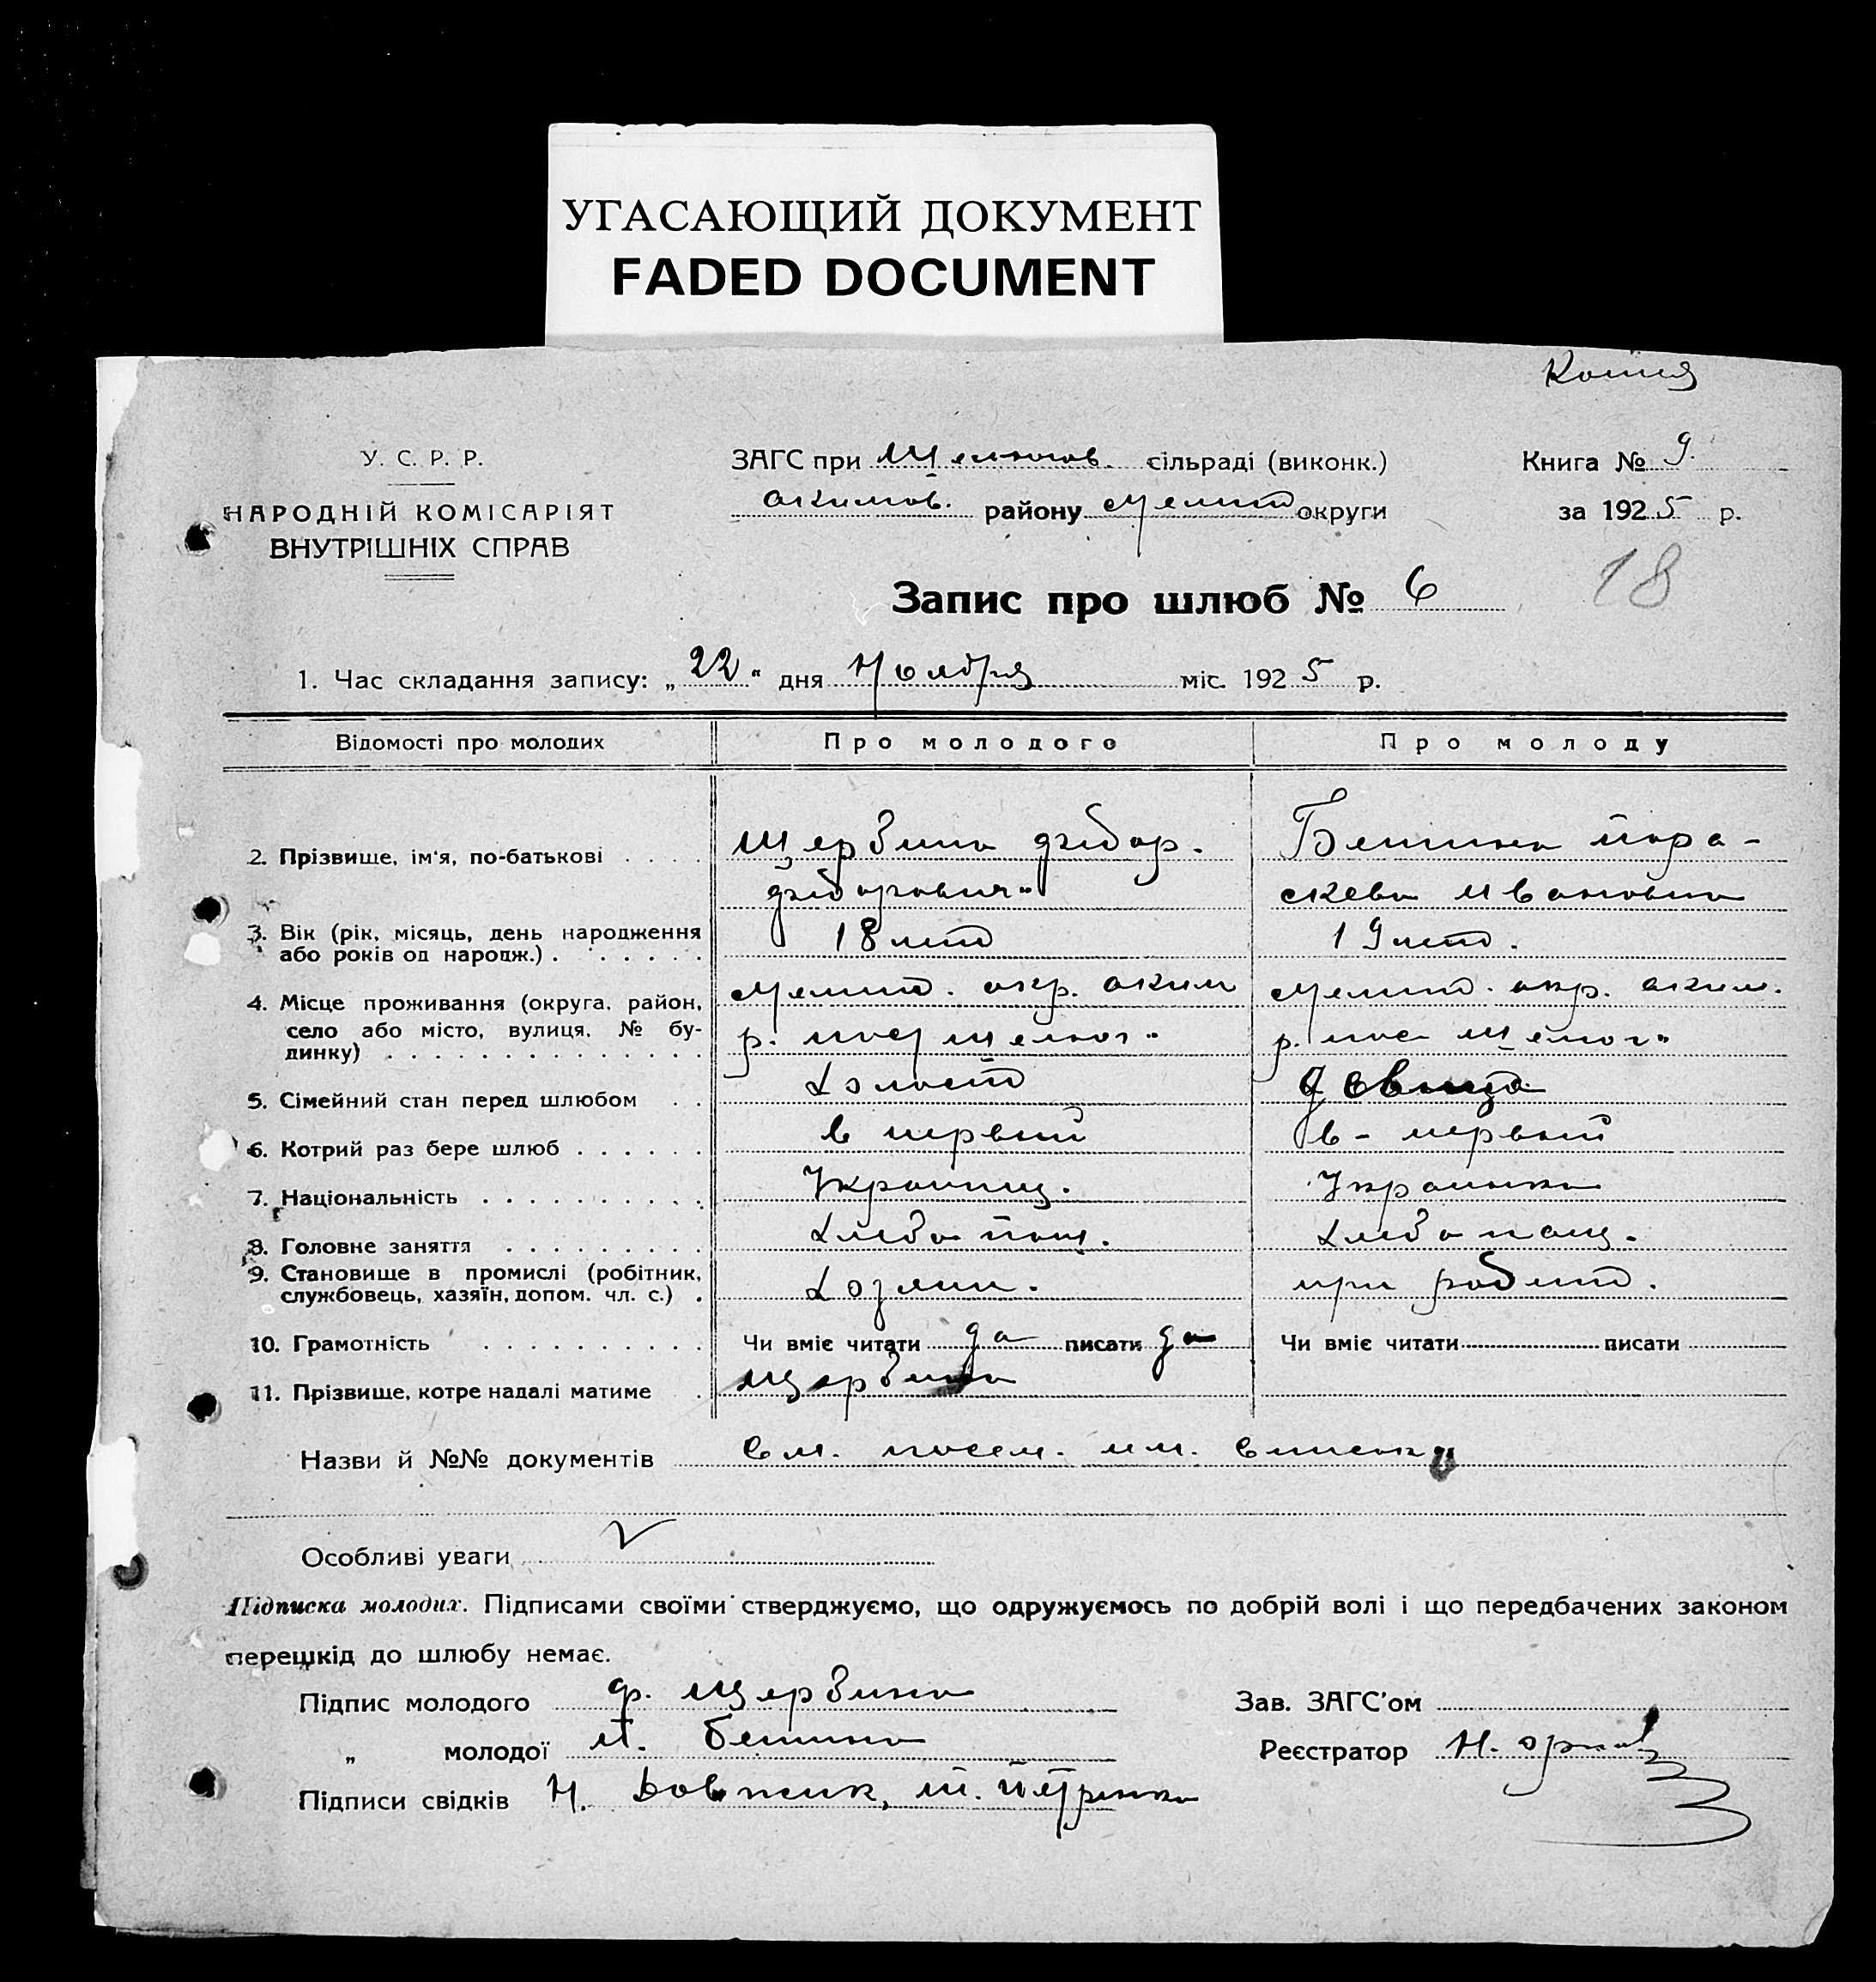 УГАСАЮЩИЙ ДОКУМЕНТ
FADED DOCUMENT
Копия
У. С. Р. Р.
НАРОДНІЙ КОМІСАРІЯТ
ВНУТРІШНІХ СПРАВ
ЗАГС при сільраді (виконк.)
Акимов. району Мелит округи
Книга № 9
за 1925 р.
Запис про шлюб № 6
18
1. Час складання запису: „22" дня Ноября міс. 1925 р.
Відомості про молодих Про молодого Про молоду
2. Прізвище, ім'я, по-батькові . . . . Щербина Федор. Бешина Пара-
Федорович скева Ивановна
3. Вік (рік, місяць, день народження
або років од народж.) . . . . . . 18 лет 19 лет.
4. Місце проживання (округа, район, Мелит. окр. Аким Мелит. окр. Аким.
село або місто, вулиця, № бу-
динку) . . . . . . . . . . . . . . р. пос р. пос
5. Сімейний стан перед шлюбом . . Холост Девица
6. Котрий раз бере шлюб . . . . . . в первый в - первый
7. Національність . . . . . . . . . . Украинц. Украинка
8. Головне заняття . . . . . . . . . Хлебопащ. Хлебопащ.
9. Становище в промислі (робітник,
службовець, хазяїн, допом. чл. с.) . Хозяин. при
10. Грамотність . . . . . . . . . . Чи вміє читати да писати да Чи вміє читати писати
11. Прізвище, котре надалі матиме . Щербина
Назви й №№ документів посем. им. списки
Особливі уваги
Підписка молодих. Підписами своїми стверджуємо, що одружуємось по добрій волі і що передбачених законом
перешкід до шлюбу немає.
Підпис молодого Ф. Щербина
„ молодої П. Бешина
Підписи свідків Н. Довжик, Петренко
Зав. ЗАГС'ом
Реєстратор Н.